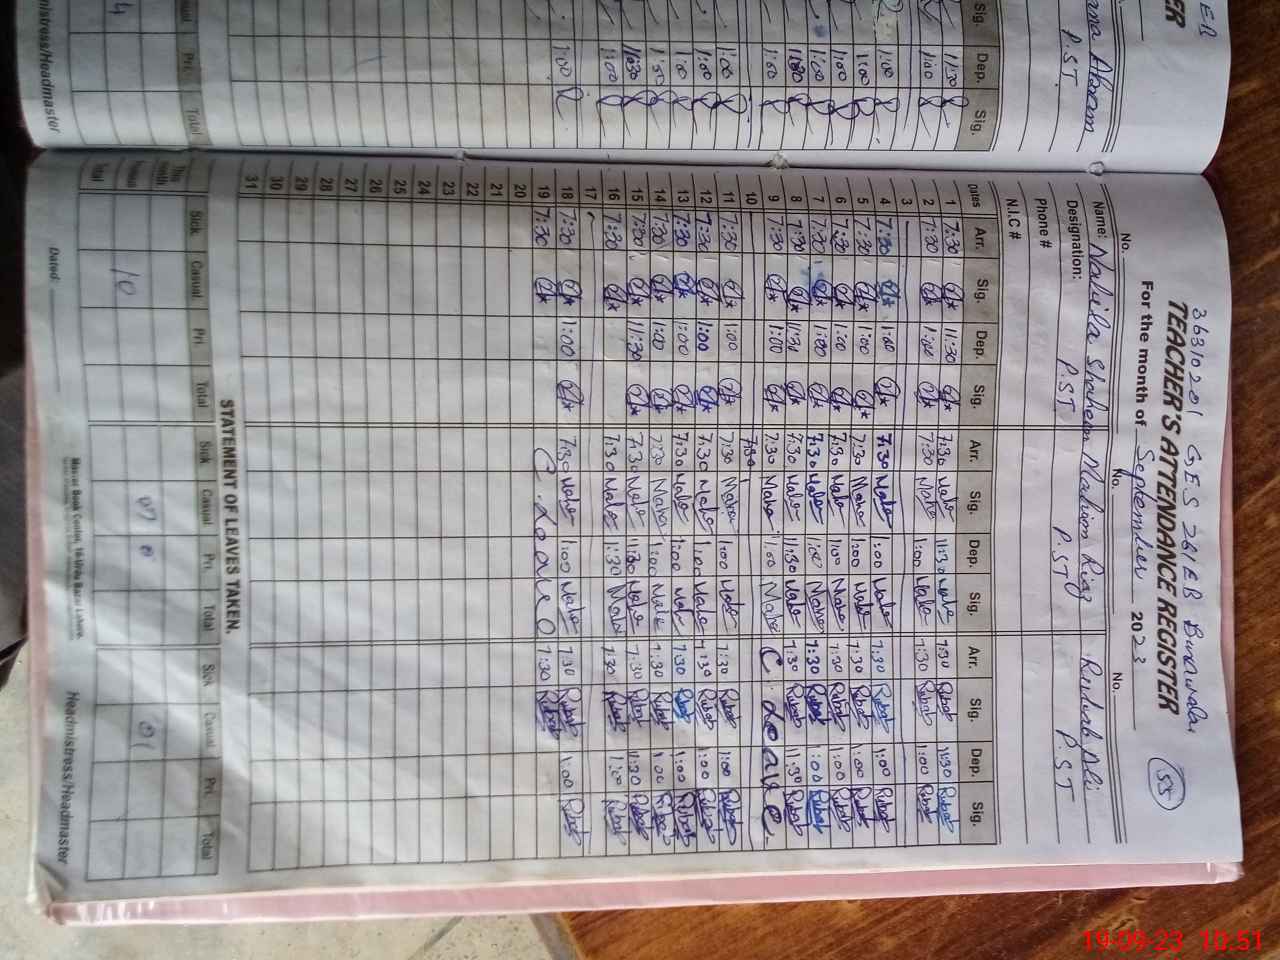 36310201 G.E.S 261EB Burawala
58
TEACHER'S ATTENDANCE REGISTER
For the month of September 2023
No. No. No.
Name: Nabila Shaheen Mahion Riaz Rubab Ali
Designation: P.S.T P.S.T P.S.T
Phone #
N.I.C #
Dates Arr. Sig. Dep. Sig. Arr. Sig. Dep. Sig. Arr. Sig. Dep. Sig.
1 7:30 11:30 7:30 Maha 11:30 Maha 7:30 Rubab 11:30 Rubab
2 7:30 1:00 7:30 Maha 1:00 Maha 7:30 Rubab 1:00 Rubab
3
4 7:30 1:00 7:30 Maha 1:00 Maha 7:30 Rubab 1:00 Rubab
5 7:30 1:00 7:30 Maha 1:00 Maha 7:30 Rubab 1:00 Rubab
6 7:30 1:00 7:30 Maha 1:00 Maha 7:30 Rubab 1:00 Rubab
7 7:30 1:00 7:30 Maha 1:00 Maha 7:30 Rubab 1:00 Rubab
8 7:30 11:30 7:30 Maha 11:30 Maha 7:30 Rubab 11:30 Rubab
9 7:30 1:00 7:30 Maha 1:00 Maha C. Leave
10 7:30
11 7:30 1:00 7:30 Maha 1:00 Maha 7:30 Rubab 1:00 Rubab
12 7:30 1:00 7:30 Maha 1:00 Maha 7:30 Rubab 1:00 Rubab
13 7:30 1:00 7:30 Maha 1:00 Maha 7:30 Rubab 1:00 Rubab
14 7:30 1:00 7:30 Maha 1:00 Maha 7:30 Rubab 1:00 Rubab
15 7:30 11:30 7:30 Maha 11:30 Maha 7:30 Rubab 11:30 Rubab
16 7:30 7:30 Maha 1:30 Maha 7:30 Rubab 1:00 Rubab
17
18 7:30 1:00 7:30 Maha 1:00 Maha 7:30 Rubab 1:00 Rubab
19 7:30 C. Leave 7:30 Rubab
20
21
22
23
24
25
26
27
28
29
30
31
STATEMENT OF LEAVES TAKEN.
Sick Casual Pri. Total Sick Casual Pri. Total Sick Casual Pri. Total
This month 07 01
Annual 10
Total
Master Book Center, 16-Urdu Bazar Lahore.
Dated: Headmistress/Headmaster
P.S.T
Sig. Dep. Sig.
11:30
1:00
1:00
1:00
1:00
1:00
11:30
1:00
1:00
1:00
1:00
1:00
11:30
1:00
1:00
Pri. Total
Headmistress/Headmaster
19-09-23 10:51